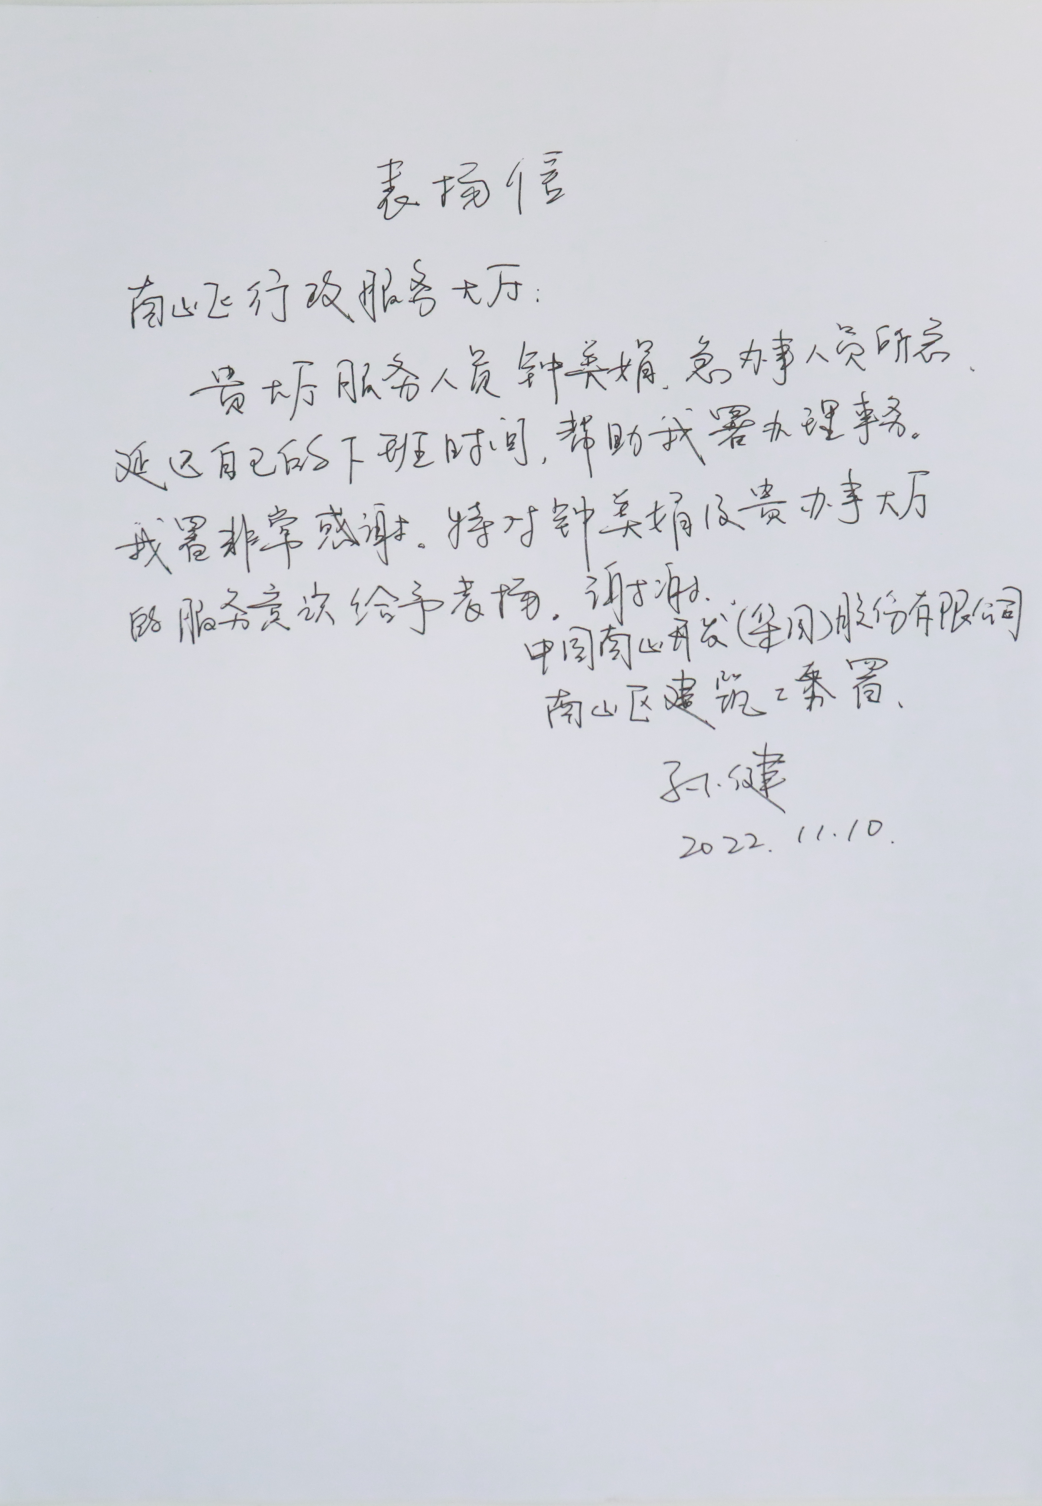 表扬信
南山区行政服务大厅:
贵大厅服务人员钟美娟、急办事人员所急、
延迟自己的下班时间,帮助我署办理事务。
我署非常感谢。特对钟美娟及贵办事大厅
的服务意识给予表扬。谢谢.
中国南山开发(集团)股份有限公司
南山区建筑工务署、
孙健
2022.11.10.